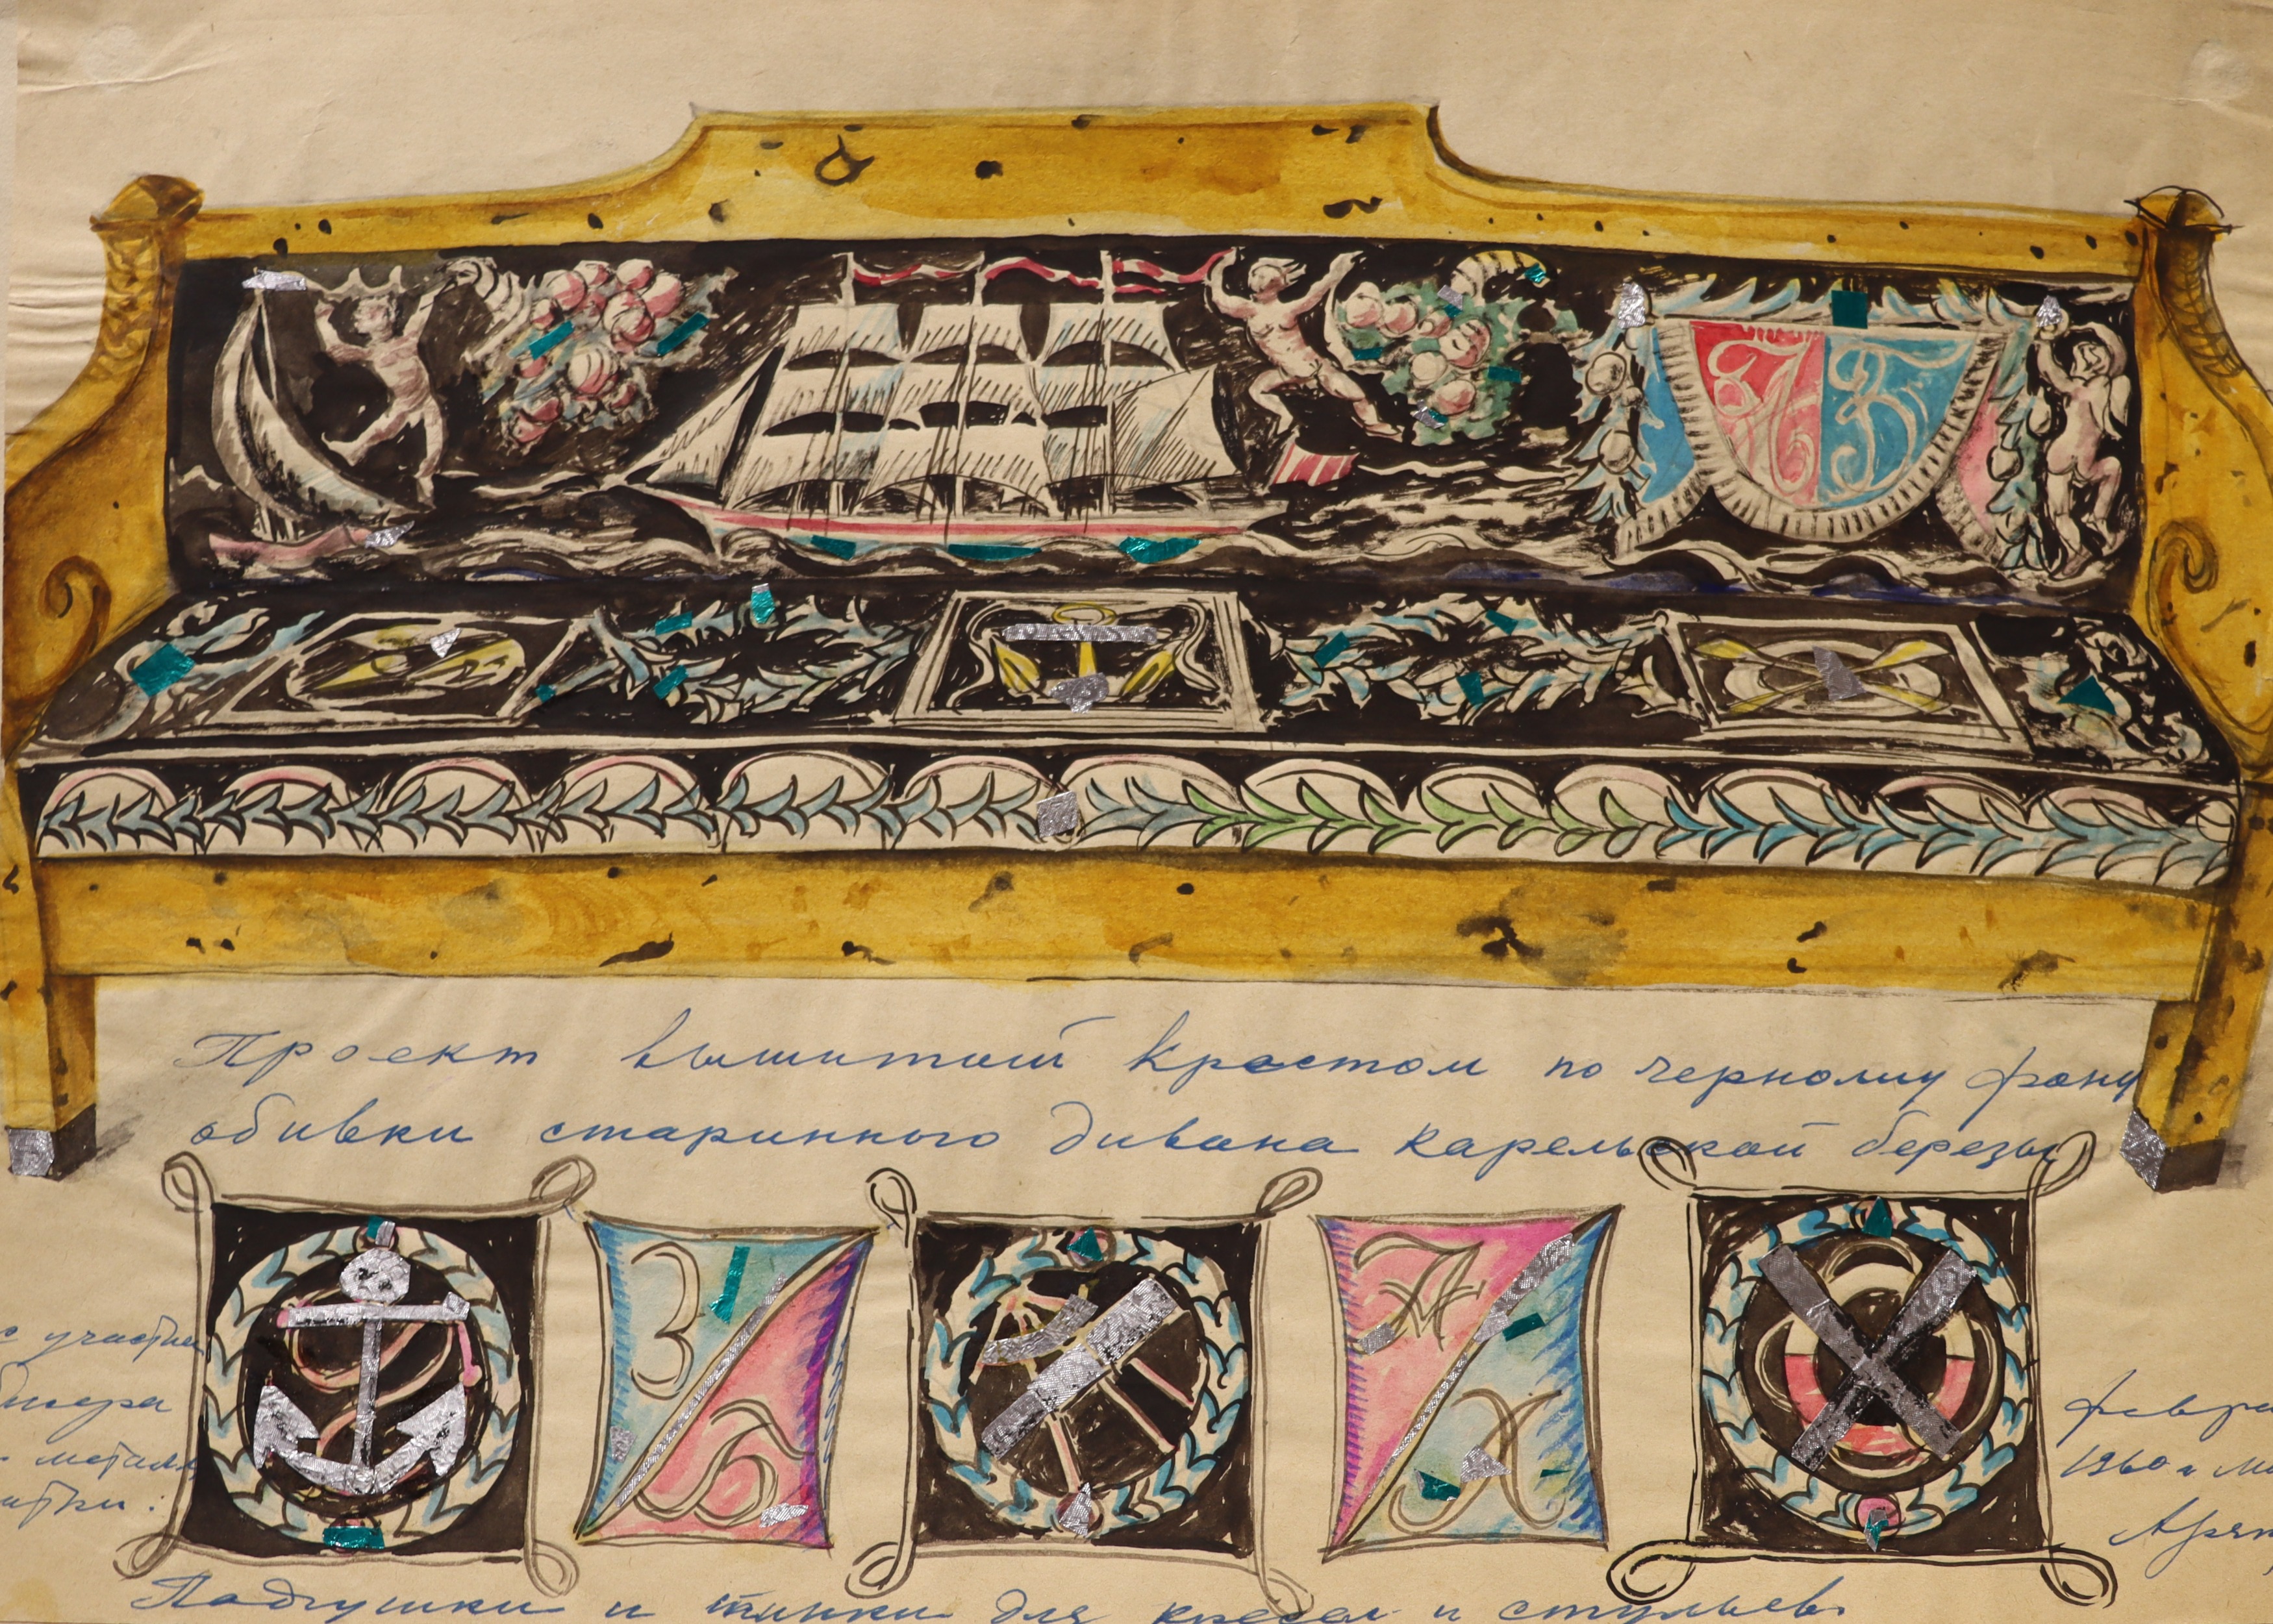 А З
Проект вышитый крестом по черному фону
обивки старинного дивана карельской березы
З Б
А Х
с участием
бисера
металл
итки:
февра
1960 г. Мо
Подушки и спинки для кресел и стульев